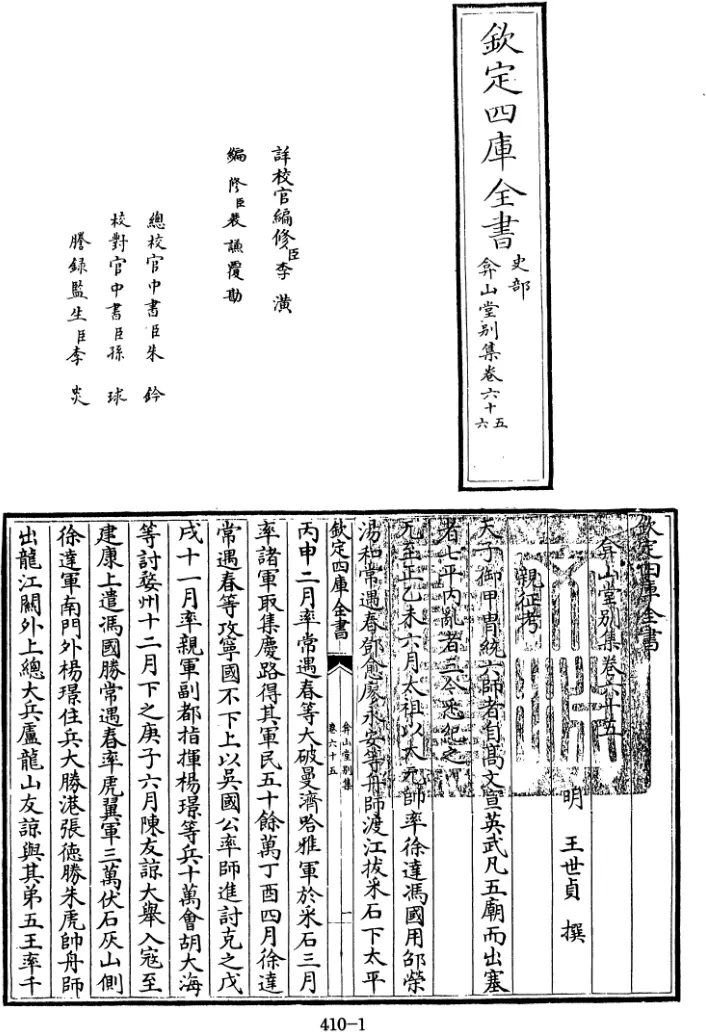 欽定四庫全書
史部
弇山堂別集卷六十五
六
詳校官編修臣李潢
編修臣裴謙覆勘
總校官中書臣朱鈐
校對官中書臣孫球
謄錄監生臣李炎
欽定四庫全書
弇山堂別集卷六十五
明 王世貞 撰
親征考
天子御甲冑統六師者自高文宣英武凡五廟而出塞
者七平內亂者三今悉紀之
元至正乙未六月太祖以大元帥率徐達馮國用邵榮
湯和常遇春鄧愈廖永安等舟師渡江拔采石下太平
欽定四庫全書
弇山堂別集
卷六十五
一
丙申二月率常遇春等大破曼濟哈雅軍於采石三月
率諸軍取集慶路得其軍民五十餘萬丁酉四月徐達
常遇春等攻寧國不下上以吳國公率師進討克之戊
戌十一月率親軍副都指揮楊璟等兵十萬會胡大海
等討婺州十二月下之庚子六月陳友諒大舉入寇至
建康上遣馮國勝常遇春率虎翼軍三萬伏石灰山側
徐達軍南門外楊璟住兵大勝港張德勝朱虎帥舟師
出龍江關外上總大兵廬龍山友諒與其弟五王率千
410-1